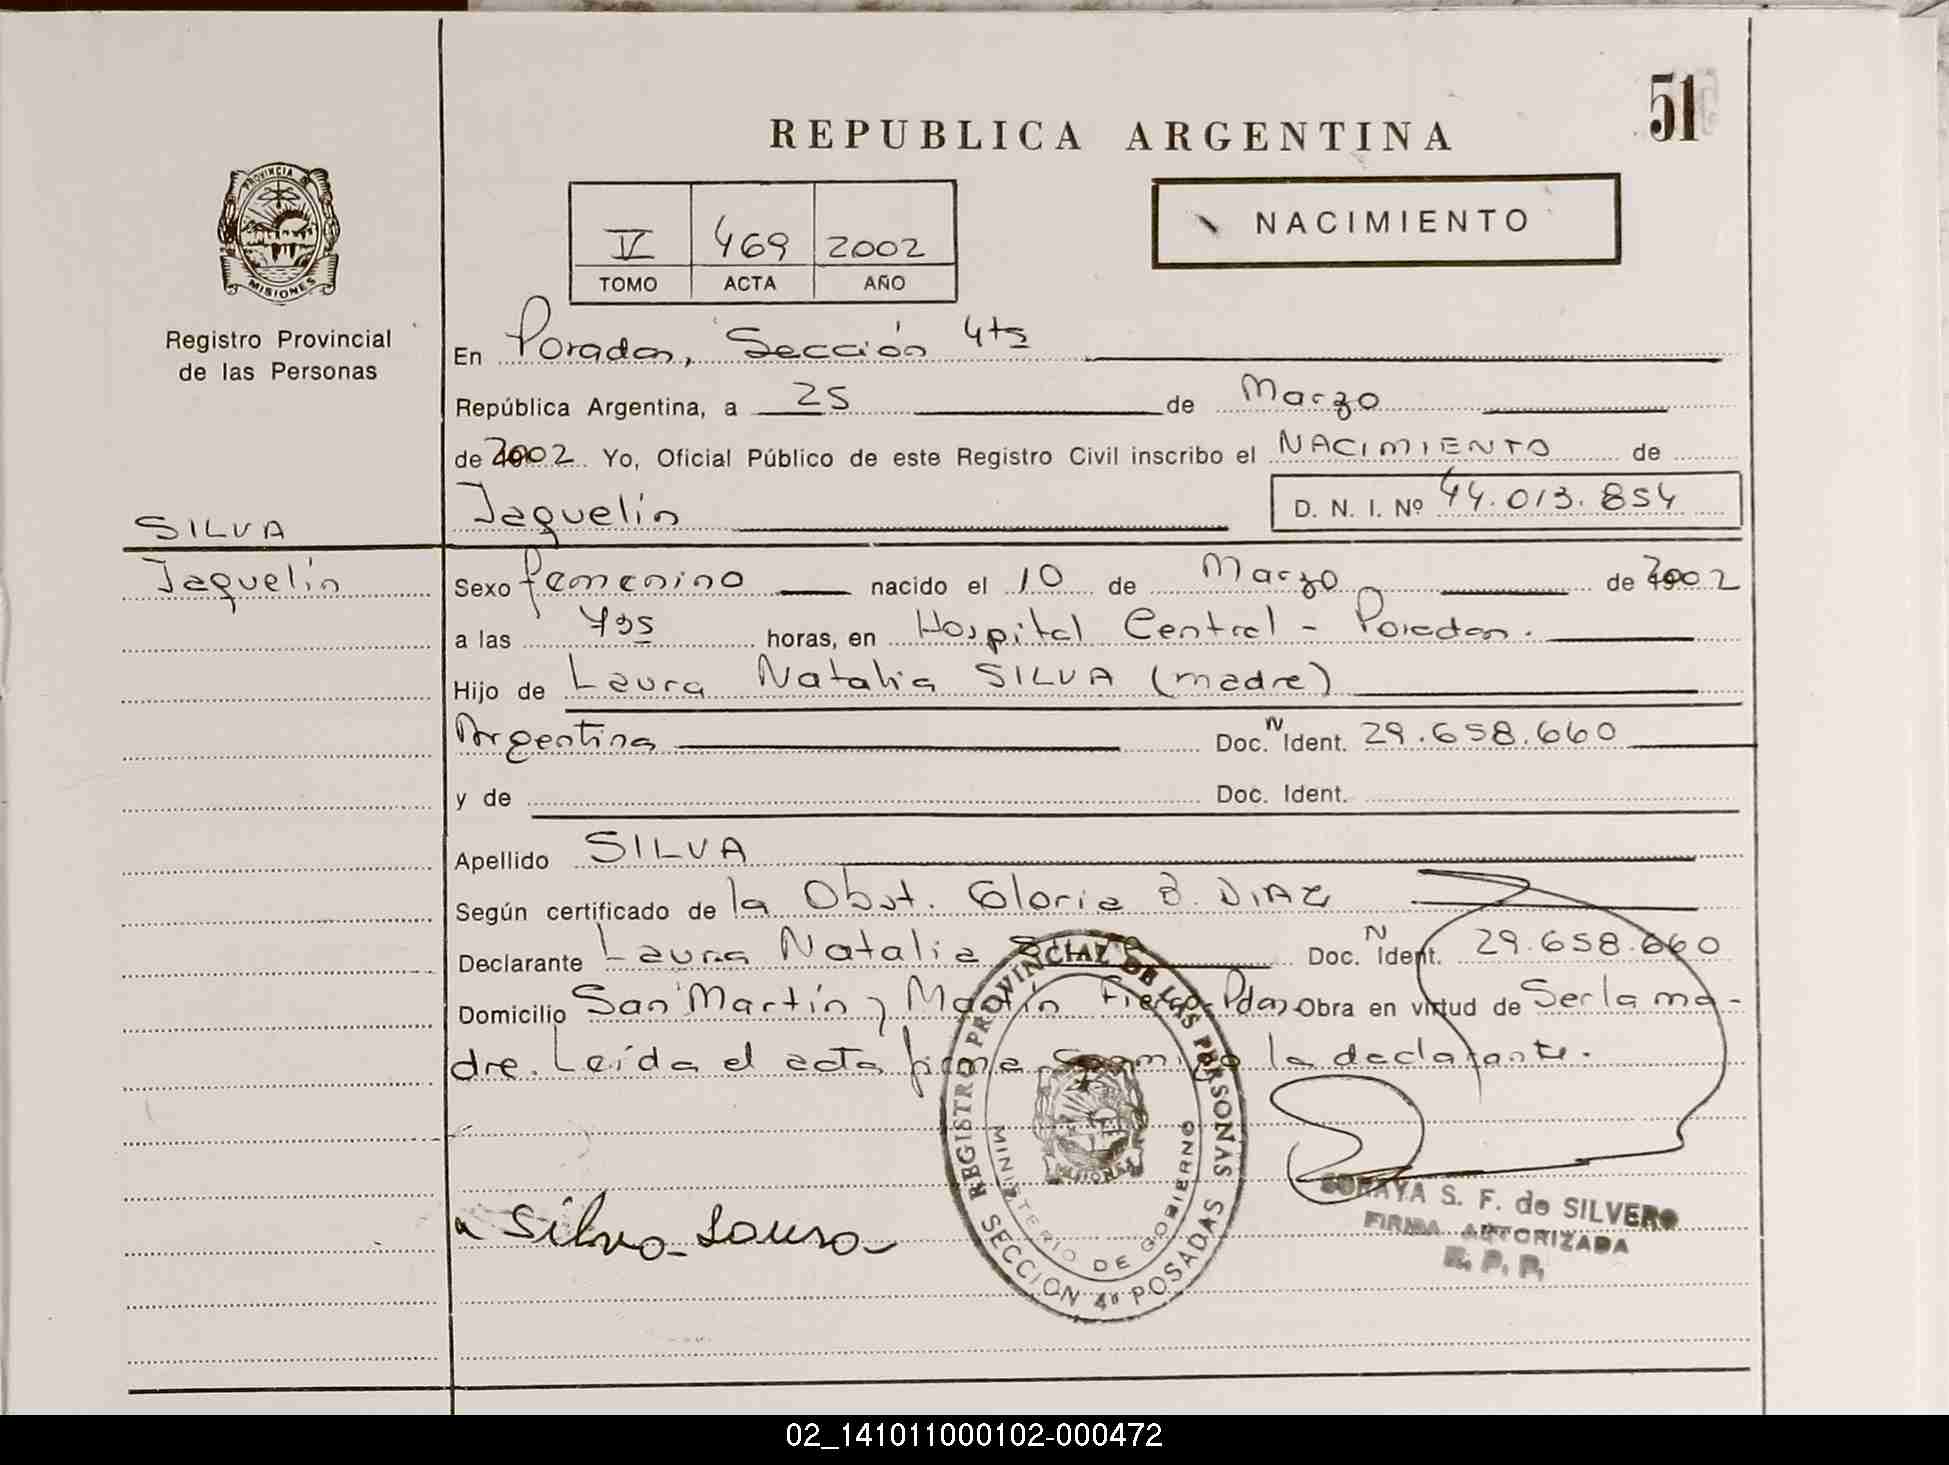 51
REPUBLICA ARGENTINA
PROVINCIA DE
MISIONES
Registro Provincial
de las Personas
V 469 2002
TOMO ACTA AÑO
NACIMIENTO
En Posadas, Sección 4ta
República Argentina, a 25 de Marzo
de 2002 Yo, Oficial Público de este Registro Civil inscribo el NACIMIENTO de
Jaquelin D. N. I. Nº 44.013.854
SILVA
Jaquelin
Sexo femenino nacido el 10 de Marzo de 2002
a las horas, en Hospital Central - Posadas.
Hijo de Laura Natalia SILVA (madre)
Argentina Doc. N Ident. 29.658.660
y de Doc. Ident.
Apellido SILVA
Según certificado de la Obst. Gloria B. DIAZ
Declarante Laura Natalia SILVA Doc. N Ident. 29.658.660
Domicilio San Martín y Martín Fierro-Pdas Obra en virtud de Ser la ma-
dre. Leída el acta firma conmigo la declarante.
REGISTRO PROVINCIAL DE LAS PERSONAS
MINISTERIO DE GOBIERNO
MISIONES
SECCION 4ª POSADAS
Silva Laura
SORAYA S. F. de SILVERO
FIRMA AUTORIZADA
R. P. P.
02_141011000102-000472